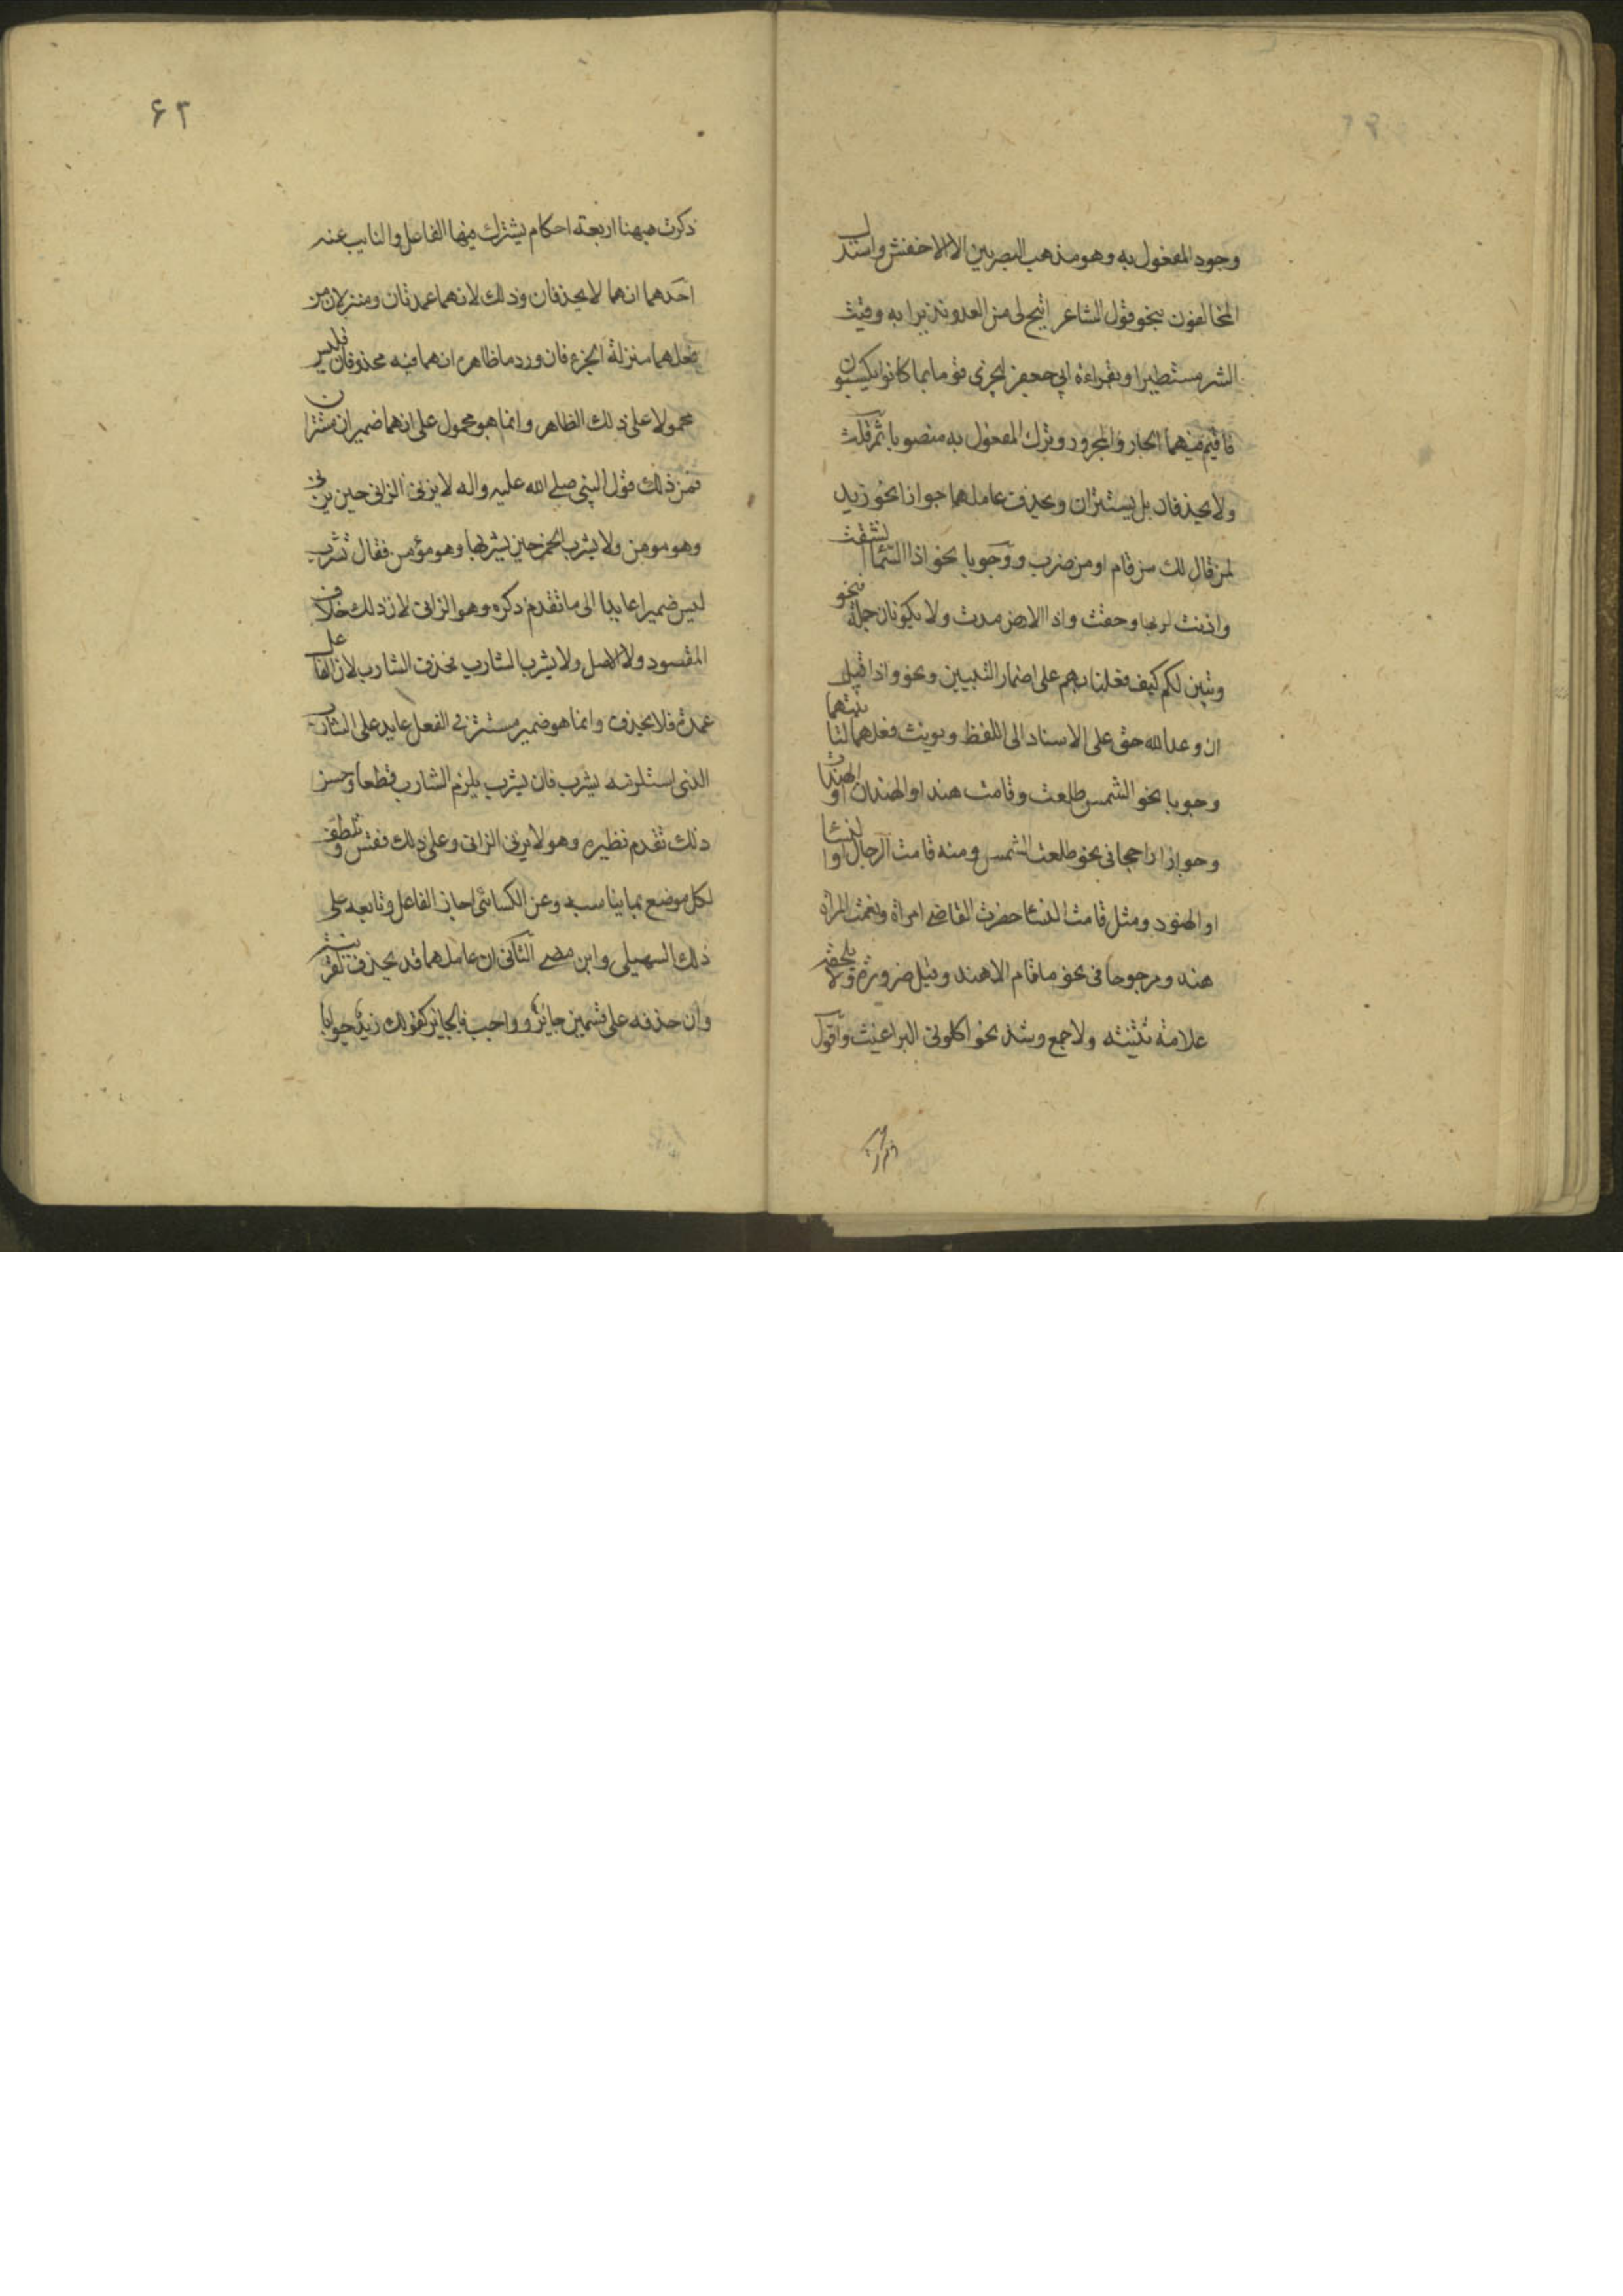 وجود المفعول به وهو مذهب البصريين الا الاخفش واستدل
المخالفون بنحو قول الشاعر اتيح لى من العدو نذيرا به وقيت
الشر مستطيرا وبقراءة ابى جعفر ليجزى قوما بما كانوا يكسبون
فاقيم فيهما الجار والمجرور وترك المفعول به منصوبا ثم قلت
ولا يحذفان بل يستتران ويحذف عاملهما جوازا نحو زيد
لمن قال لك من قام او من ضرب ووجوبا نحو اذا السّماء انشقت
واذنت لربها وحقت واذا الارض مدت ولا يكونان جملة فنحو
وتبين لكم كيف فعلنا بهم على اضمار التبيين ونحو واذا قيل
ان وعد الله حق على الاسناد الى اللفظ ويونث فعلهما لتانيثهما
وجوبا نحو الشمس طلعت وقامت هند او الهندان او الهندات
وجوازا راجحا فى نحو طلعت الشمس ومنه قامت الرجال او النساء
او الهنود ومثل قامت النساء حضرت القاضى امراة ونعمت المراة
هند ومرجوحا فى نحو ما قام الا هند وقيل ضرورة ولا يلحقه
علامة تثنيته ولا جمع وشذ نحو اكلونى البراغيث واقول
۶۲
ذكرت هيهنا اربعة احكام يشترك فيها الفاعل والنايب عنه
احدهما انهما لا يحذفان وذلك لانهما عمدتان ومنزلان من
فعلهما منزلة الجزء فان ورد ما ظاهره انهما فيه محذوفان فليس
محمولا على ذلك الظاهر وانما هو محمول على انهما ضميران مستتران
فمن ذلك قول النبى صلى الله عليه واله لا يزنى الزانى حين يزنى
وهو مومن ولا يشرب الخمر حين يشربها وهو مؤمن ففال يشرب
ليس ضميرا عايدا الى ما تقدم ذكره وهو الزانى لان ذلك خلاف
المقصود ولا الاصل ولا يشرب الشارب فحذف الشارب لان الفاعل
عمدة فلا يحذف وانما هو ضمير مستتر فى الفعل عايد على الشارب
الذى استلزمه يشرب فان يشرب يلزم الشارب قطعا وحسن
ذلك تقدم نظيره وهو لا يزنى الزانى وعلى ذلك ففتس وتلطف
لكل موضع بما يناسبه وعن الكسائى اجاز الفاعل وتابعه على
ذلك السهيلى وابن مضى الثانى ان عاملهما قد يحذف لقرينة
وان حذفه على قسمين جائز وواجب فالجايز كقولك زيد جوابا